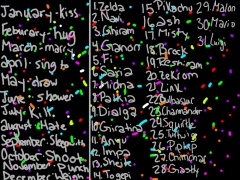 January-kiss
Feburary-hug
March-marry
april-sing to
May-draw
June-shower
July-Kill
august Hate
September Sleep with
October Shoot
November
December
1. Zelda
2. Navi
3. Ghiram
4. Ganon
5. Fi
6. Saria
7. Midna
8. Palkia
9. Dialga
10. Giratina
11. Anju
12. Impa
13. Sheik
14. 
15. Pikachu
16. ash
17. Misty
18. Brock
19. Reshiram
20. Zekrom
21. Link
22. Bulbasaur
23. Charmander
24. Squirtle
25. Totodile
26. Piplup
27. Chimchar
28. Gastly
29. Maron
30. Mario
31. Luigi